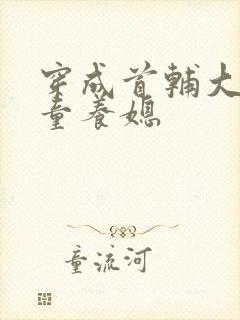 穿成首辅大
童养媳
童流河